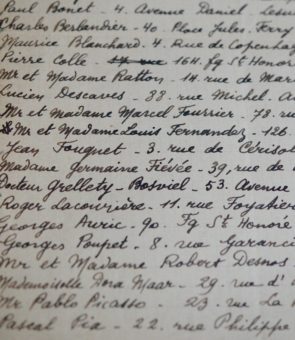 Paul Bonet - 4. Avenue Daniel Lesu
Charles Berlandier - 40. Place Jules Ferry
Maurice Blanchard. 4. Rue de Copenha
Pierre Colle - 164. Fg St Honor
Mr et Madame Ratton - 14. rue de Mar
Lucien Descaves - 33. rue Michel. A
Mr et madame Marcel Fourrier - 73. ru
Mr et Madame Louis Fernandez - 126.
Jean Fouquet - 3. rue de Cérisol
Madame Germaine Fiévée - 39, rue de
Docteur Grellety - Bosviel - 53. Avenue
Roger Lacourière - 11. rue Foyatier
Georges Auric - 90. Fg St Honoré
Georges Poupet - 8. rue Garanci
Mr et Madame Robert Desnos
Mademoiselle Dora Maar - 29. rue d'
Mr Pablo Picasso - 23. rue La
Pascal Pia - 22. rue Philippe